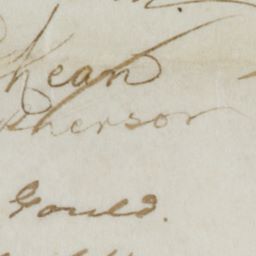 Kean
pherson
Gould.